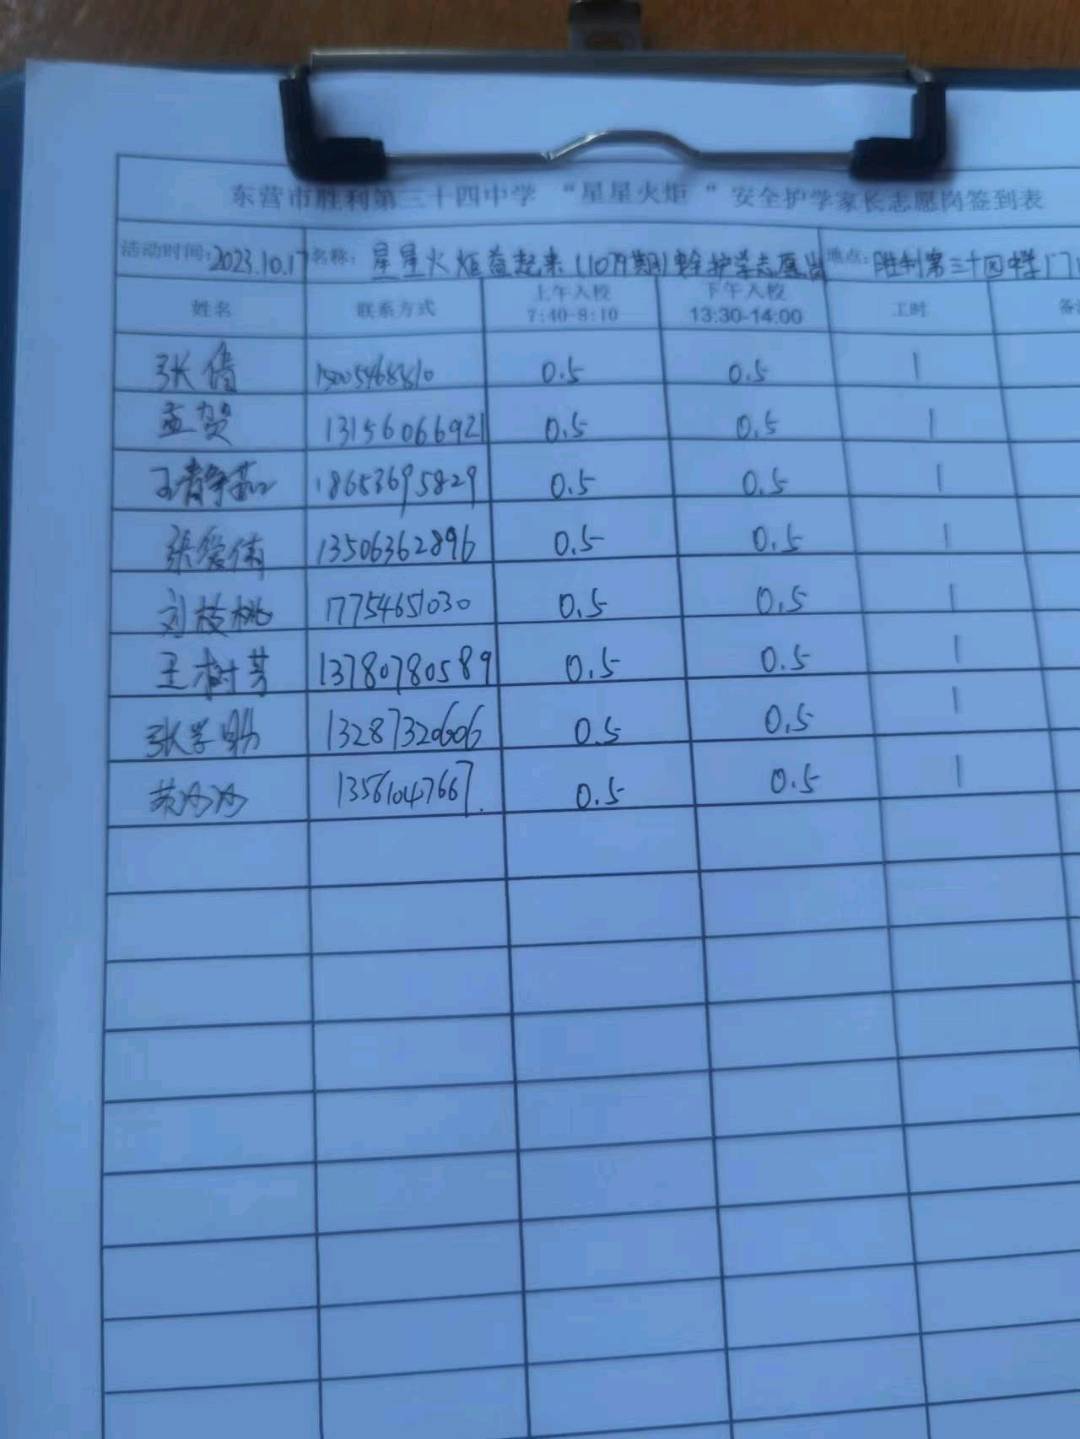 东营市胜利第三十四中学 “星星火炬 ” 安全护学家长志愿岗签到表
活动时间: 2023.10.17 名称: 星星火炬益起来 (109期) 安全护学志愿岗 地点: 胜利第三十四中学门
姓名 联系方式 上午入校 7:40-8:10 下午入校 13:30-14:00 工时
张倩 0.5 0.5 1
孟贺 13156066921 0.5 0.5 1
王静茹 18653695829 0.5 0.5 1
张俊伟 13506362896 0.5 0.5 1
刘枝桃 17754651030 0.5 0.5 1
王树芳 13780780589 0.5 0.5 1
张学勤 13287320606 0.5 0.5 1
13561047667. 0.5 0.5 1